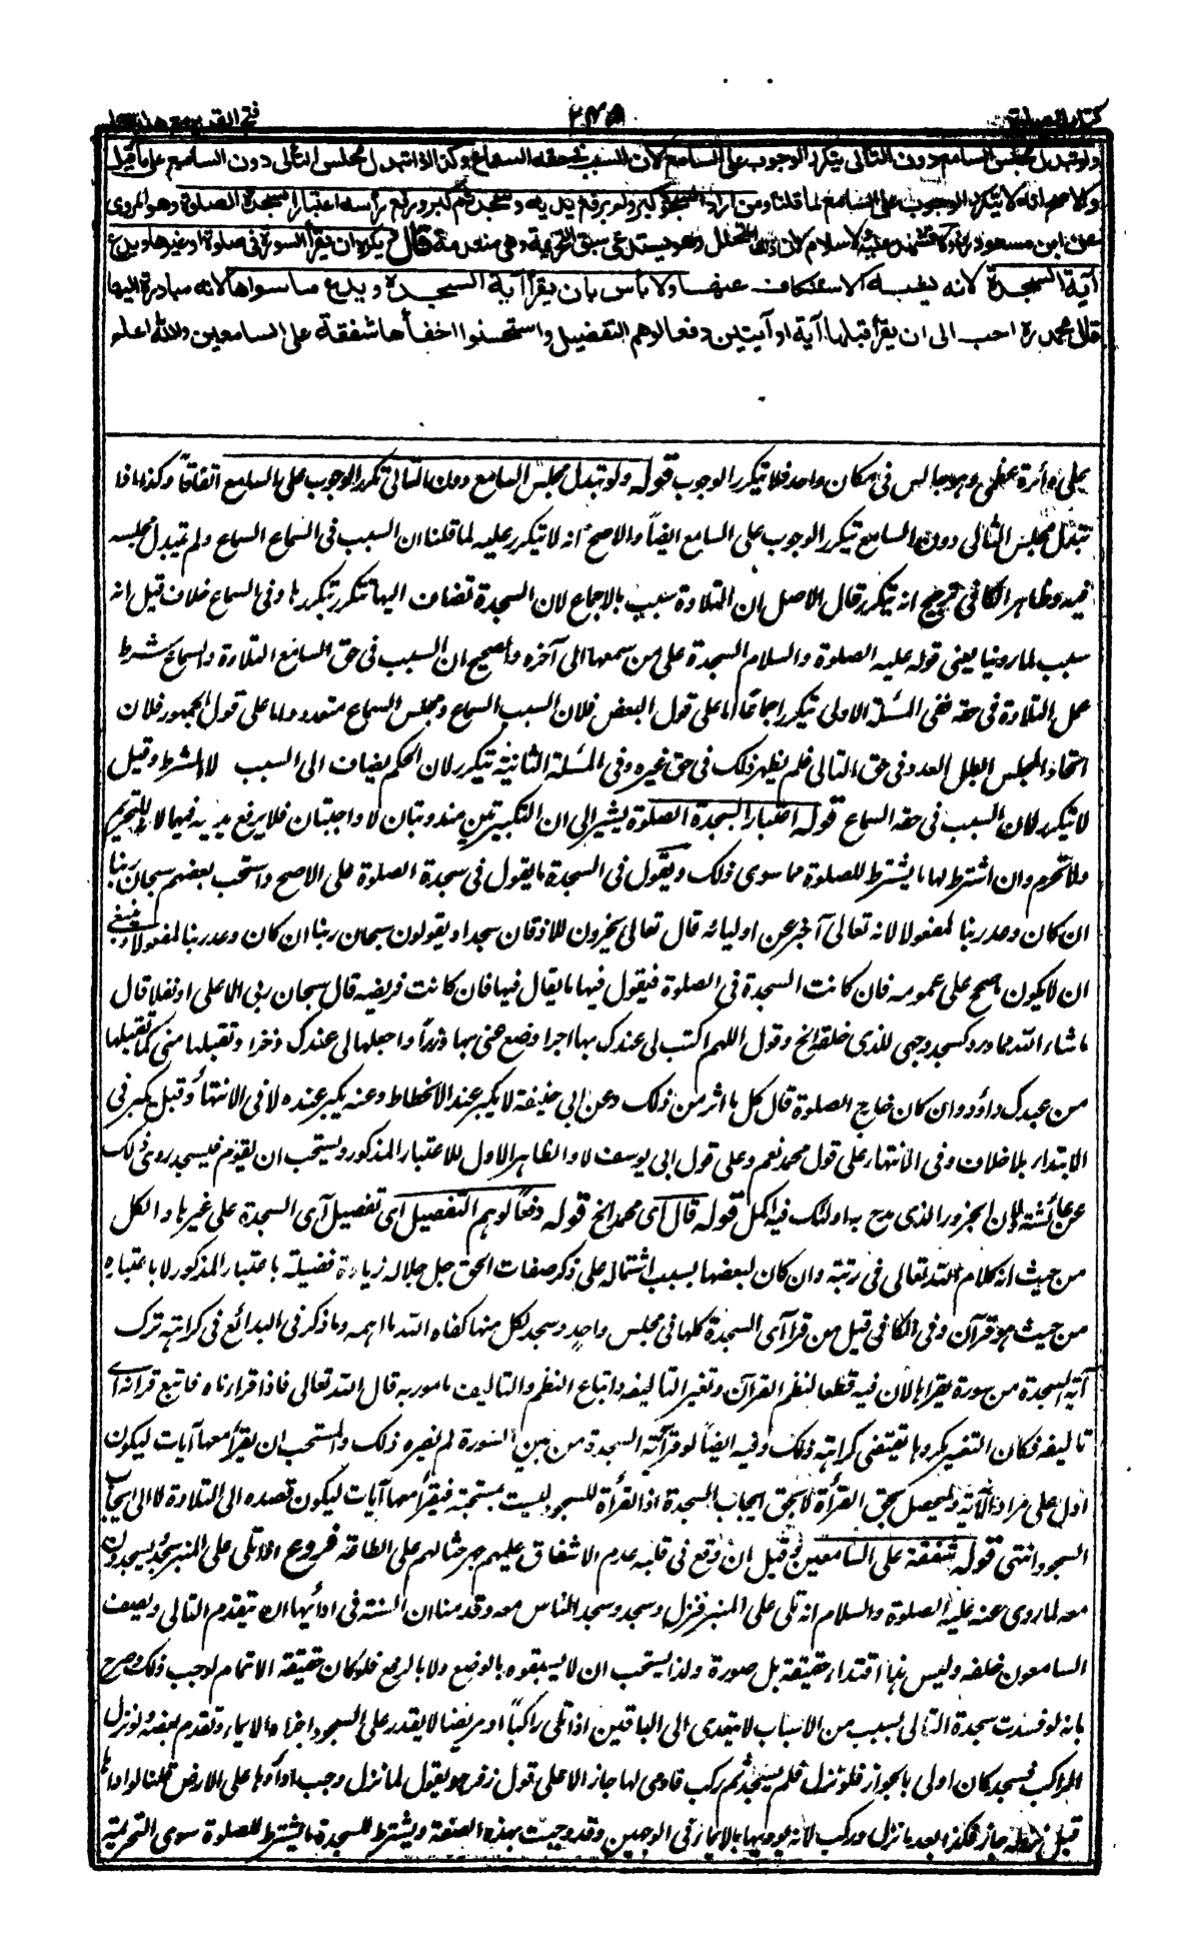 كتاب الصلوة
۲۴۵
فتح القدير مع هدايه
ولو تبدل مجلس السامع دون التالي يتكرر الوجوب على السامع لان السبب في حقه السماع وكذا اذا تبدل مجلس التالي دون السامع على ما قيل
والاصح انه لا يتكرر الوجوب على السامع لما قلنا ومن اراد السجود كبر ولم يرفع يديه وسجد ثم كبر ورفع رأسه اعتبارا بسجدة الصلوة وهو المروي
عن ابن مسعود ولا تشهد عليه ولا سلام لان ذلك للتحلل وهو يستدعي سبق التحريمة وهي منعدمة قال ويكره ان يقرأ السورة في صلوة او غيرها ويدع
آية السجدة لانه يشبه الاستنكاف عنها ولا بأس بان يقرأ آية السجدة ويدع ما سواها لانه مبادرة اليها
قال محمد ره احب الي ان يقرأ قبلها آية او آيتين دفعا لوهم التفضيل واستحسنوا اخفاءها شفقة على السامعين والله اعلم
وهو جالس في مكان واحد فلا يتكرر الوجوب قوله ولو تبدل مجلس السامع دون التالي تكرر الوجوب على السامع اتفاقا وكذا اذا
تبدل مجلس التالي دون السامع تيكرر الوجوب على السامع ايضا والاصح انه لا تيكرر عليه لما قلنا ان السبب في السماع السماع ولم تيبدل مجلسه
فيه وظاهر الكافي ترجيح انه تيكرر قال الاصل ان التلاوة سبب بالاجماع لان السجدة تضاف اليها تتكرر بتكررها وفي السماع خلاف قيل انه
سبب لما روينا يعني قوله عليه الصلوة والسلام السجدة على من سمعها الى آخره والصحيح ان السبب في حق السامع التلاوة والسماع شرط
عمل التلاوة في حقه ففي المسئلة الاولى تيكرر اجماعا اما على قول البعض فلان السبب السماع ومجلس السماع متعدد واما على قول الجمهور فلان
اتحاد المجلس ابطل العدد في حق التالي فلم يظهر ذلك في حق غيره وفي المسئلة الثانية تيكرر لان الحكم يضاف الى السبب لا الشرط وقيل
لا تيكرر لان السبب في حقه السماع قوله اعتبارا بسجدة الصلوة يشير الى ان التكبيرتين مندوبتان لا واجبتان فلا يرفع يديه فيها لانه للتحريم
ولا تحرم وان اشترط لها ما يشترط للصلوة مما سوى ذلك ويقول في السجدة ما يقول في سجدة الصلوة على الاصح واستحب بعضهم سبحان ربنا
ان كان وعد ربنا لمفعولا لانه تعالى اخبر عن اوليائه قال تعالى يخرون للاذقان سجدا ويقولون سبحان ربنا ان كان وعد ربنا لمفعولا وينبغي
ان لا يكون ما صحح على عمومه فان كانت السجدة في الصلوة فيقول فيها ما يقال فيها فان كانت فريضة قال سبحان ربي الاعلى او نفلا قال
ما شاء الله مما ورد كسجد وجهي للذي خلقه الخ وقول اللهم اكتب لي عندك بها اجرا وضع عني بها وزرا واجعلها لي عندك ذخرا وتقبلها مني كما تقبلتها
من عبدك داؤد وان كان خارج الصلوة قال كل ما اثر من ذلك وعن ابي حنيفة لا يكبر عند الانحطاط وعنه يكبر عنده لا في الانتهاء وقيل يكبر في
الابتداء بلا خلاف وفي الانتهاء على قول محمد نعم وعلى قول ابي يوسف لا والظاهر الاول للاعتبار المذكور ويستحب ان يقوم فيسجد روى ذلك
عن عائشة ولان الخرور الذي مدح به اولئك فيه اكمل قوله قال اي محمد الخ قوله دفعا لوهم التفضيل اي تفضيل آي السجدة على غيرها والكل
من حيث انه كلام الله تعالى في رتبة وان كان لبعضها بسبب اشتماله على ذكر صفات الحق جل جلاله زيادة فضيلة باعتبار المذكور لا باعتباره
من حيث هو قرآن وفي الكافي قيل من قرأ آي السجدة كلها في مجلس واحد وسجد لكل منها كفاه الله ما اهمه وما ذكر في البدائع في كراهة ترك
آية السجدة من سورة يقرأها لان فيه قطعا لنظم القرآن وتغير التاليفه واتباع النظم والتاليف مامور به قال الله تعالى فاذا قرأناه فاتبع قرآنه اي
تاليفه فكان التغيير مكروها يقتضي كراهة ذلك وفيه ايضا لو قرأ آية السجدة من بين السورة لم يضره ذلك والمستحب ان يقرأ معها آيات ليكون
ادل على مراد الآية وليحصل بحق القراءة لا بحق ايجاب السجدة اذ القراءة للسجود ليست بمستحبة فيقرأ معها آيات ليكون قصده الى التلاوة لا الى ايجاب
السجود انتهى قوله شفقة على السامعين وقيل ان وقع في قلبه عدم الاشفاق عليهم جهر حثا لهم على الطاعة فروع اذا تلى على المنبر سجد ويسجدون
معه لما روى عنه عليه الصلوة والسلام انه تلى على المنبر فنزل وسجد وسجد الناس معه وقدمنا ان السنة في ادائها ان يتقدم التالي ويصف
السامعون خلفه وليس هذا اقتداء حقيقة بل صورة ولذا يستحب ان لا يسبقوه بالوضع ولا بالرفع فلو كان حقيقة الائتمام لوجب ذلك وصرح
بانه لو فسدت سجدة التالي بسبب من الاسباب لا يتعدى الى الباقين اذا تلى راكبا او مريضا لا يقدر على السجود اجزاه الايماء وتقدم بعضه ولو نزل
الراكب فسجد كان اولى بالجواز فلو نزل فلم يسجد ثم ركب فاومى لها جاز الا على قول زفر هو يقول لما نزل وجب اداؤها على الارض قلنا لو اداها
قبل نزوله جاز فكذا بعد ما نزل وركب لانه يؤديها بالايماء في الوجهين وقد وجبت بهذه الصفة ويشترط للسجدة ما يشترط للصلوة سوى التحريمة